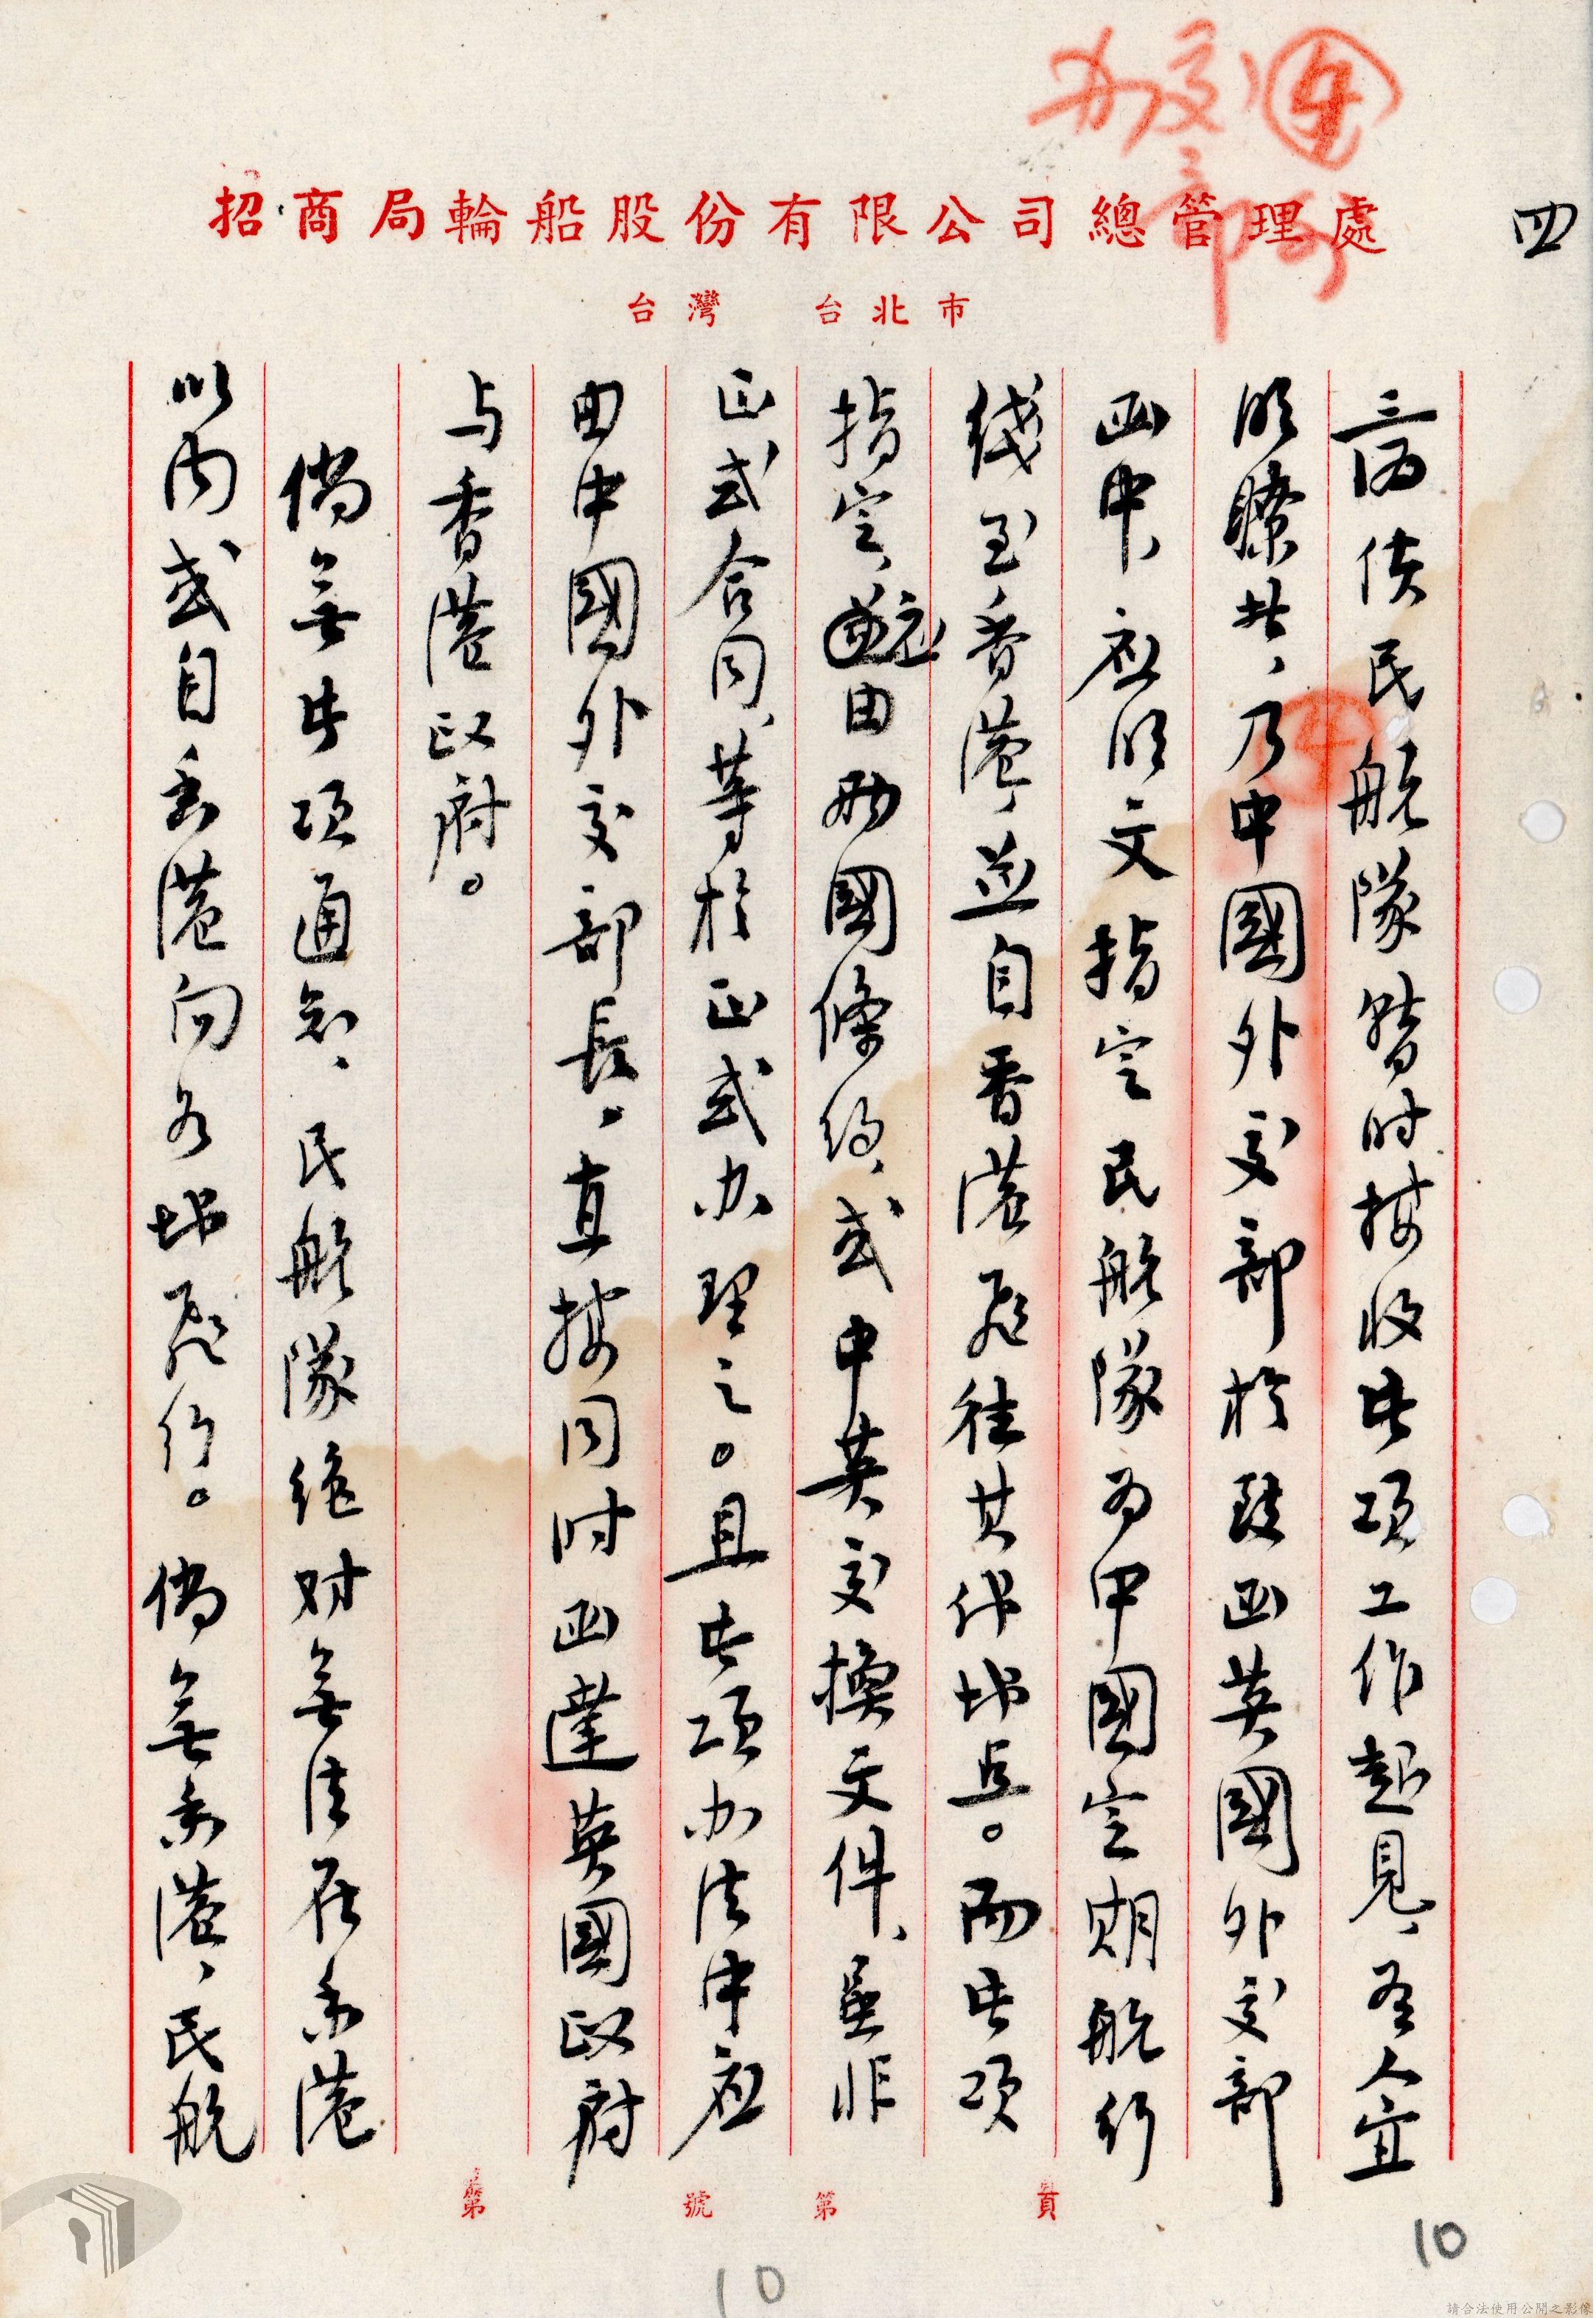 交部办
招商局輪船股份有限公司總管理處
台灣 台北市
四
三、為使民航隊暫时接收此項工作起見、吾人宜
明瞭者、乃中國外交部於致函英國外交部
函中、应明文指定民航隊为中國定期航行
綫至香港、並自香港飛往其他地点。而此項
指定、应由兩國條约、或中英交換文件、並非
正式合同、等於正式办理之。且此項办法中应
由中國外交部長、直接同时函達英國政府
与香港政府。
倘無此項通知、民航隊絕对無法在香港
以内或自香港向各地飛行。倘無香港、民航
第 號 第 頁
10
10
請合法使用公開之影像